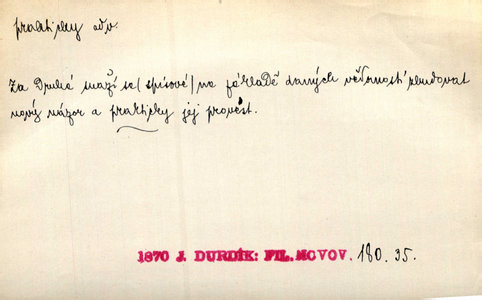 prakticky adv.
Za Druhé snaží se (spisové) na základě daných vědomostí zbudovat
nový názor a prakticky jej provést.
1870 J. DURDÍK: FIL. NOVOV. 180. 35.